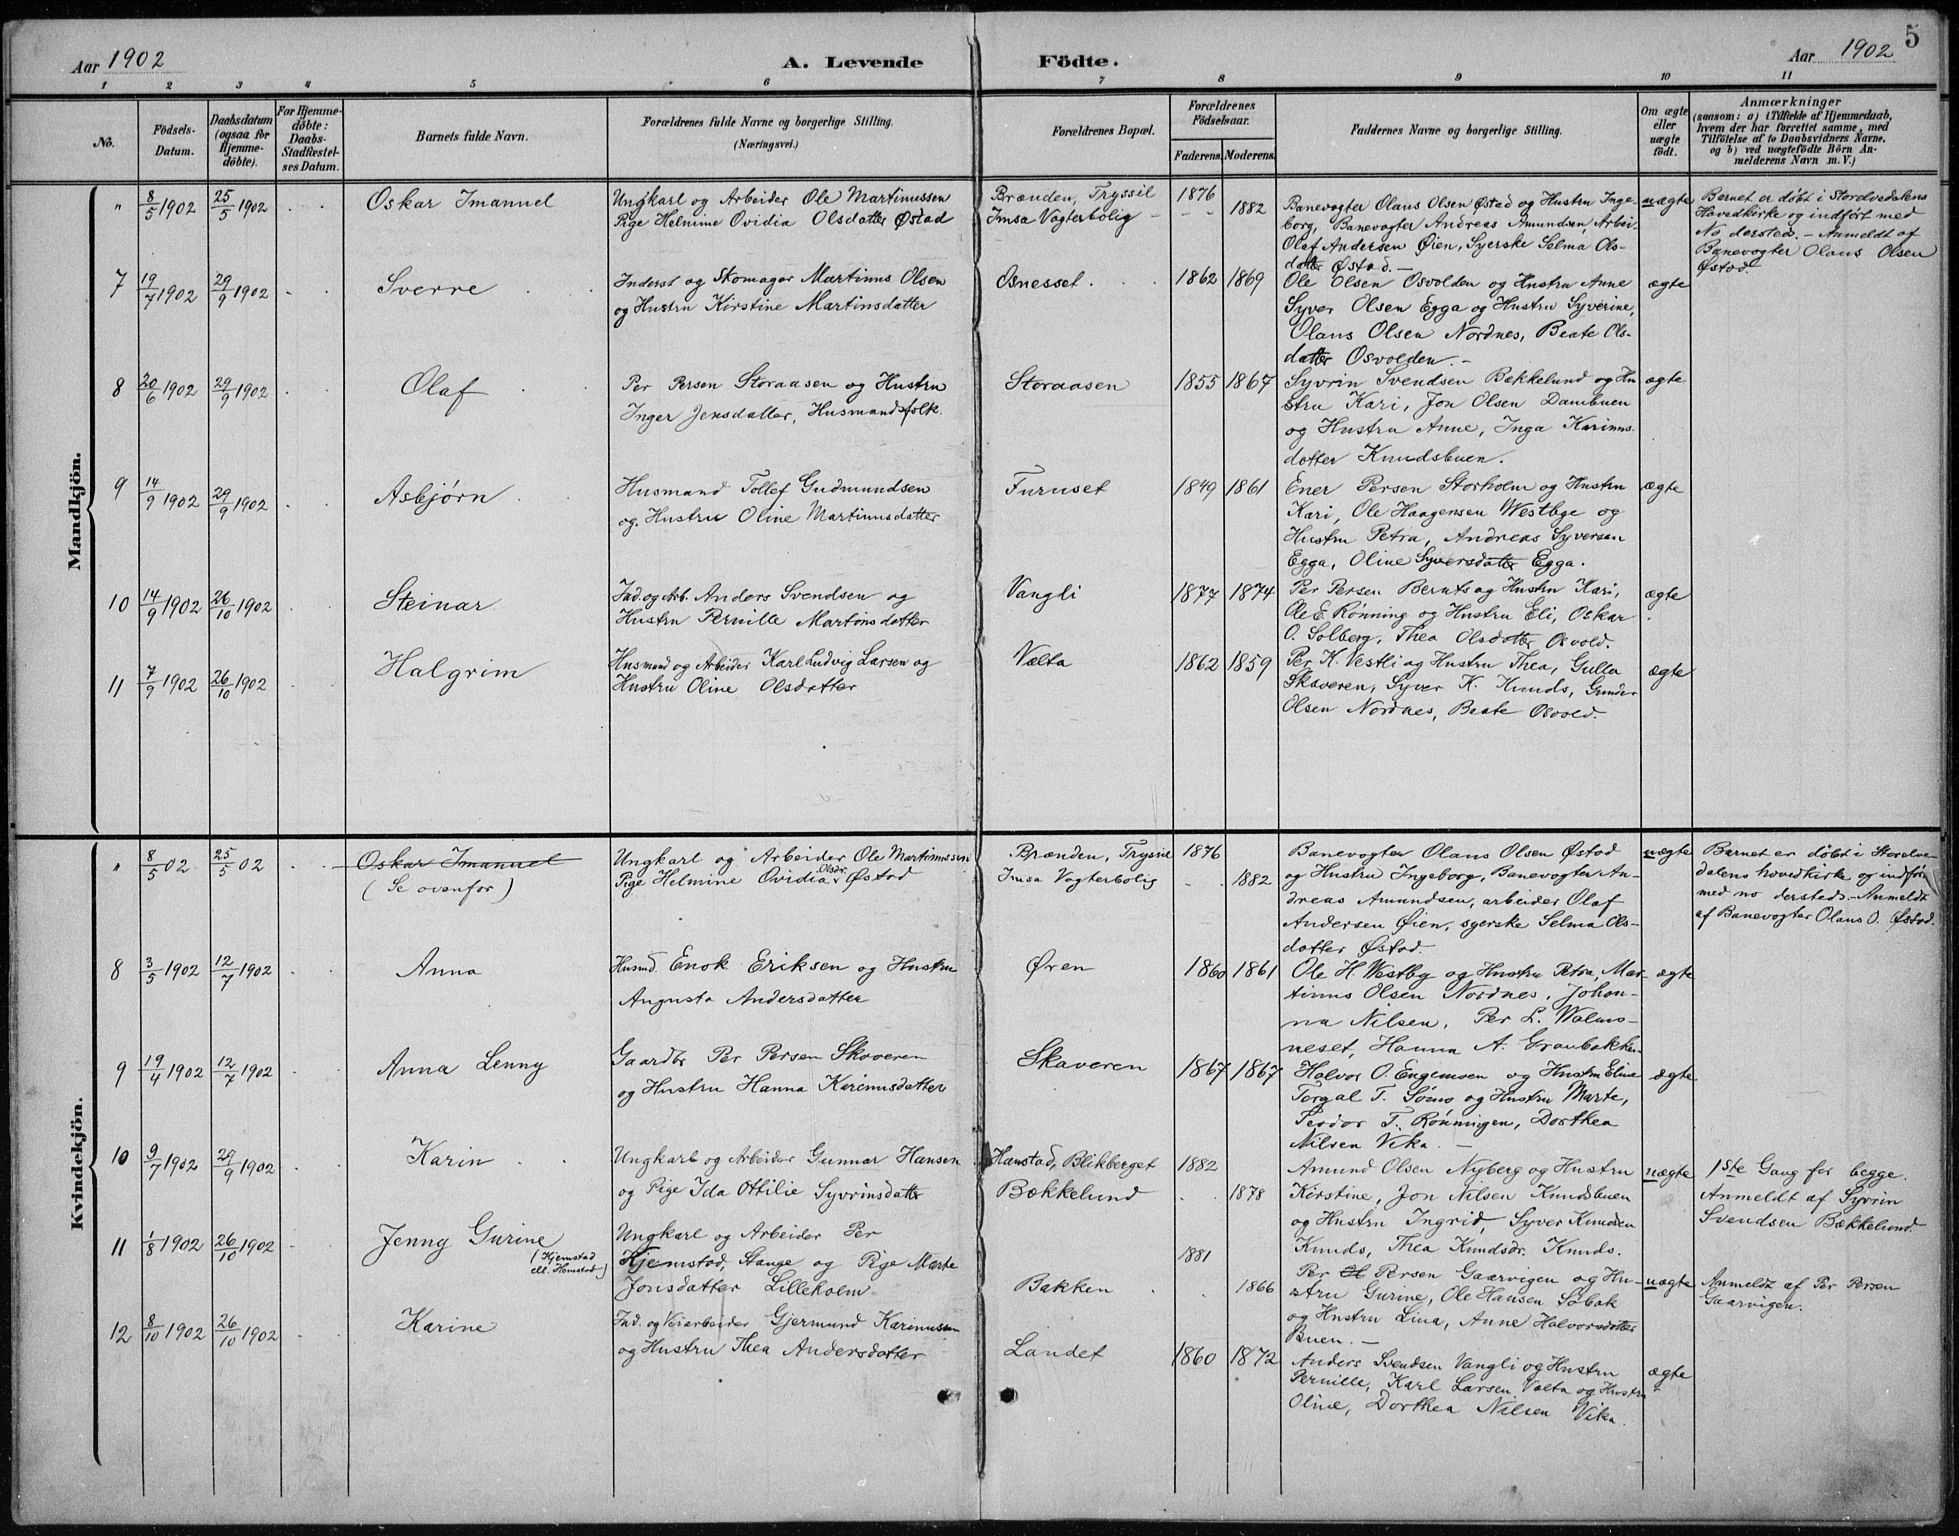 5
Aar 1902 A. Levende Födte. Aar 1902
1 2 3 4 5 6 7 8 9 10 11
No.
Födsels-
Datum.
Daabsdatum
(ogsaa for
Hjemme-
döbte).
For Hjemme-
döbte:
Daabs-
Stadfæstel-
ses Datum.
Barnets fulde Navn.
Forældrenes fulde Navne og borgerlige Stilling.
(Næringsvei.)
Forældrenes Bopæl.
Forældrenes
Födselsaar.
Faderens. Moderens.
Faddernes Navne og borgerlige Stilling.
Om ægte
eller
uægte
födt.
Anmærkninger
(saasom: a) i Tilfælde af Hjemmedaab,
hvem der har forrettet samme, med
Tilföielse af to Daabsvidners Navne,
og b) ved uægtefödte Börn An-
melderens Navn m. V.)
Mandkjön.
" 8/5 1902 25/5 1902 Oskar Imanuel
Ungkarl og Arbeider Ole Martinussen
Pige Helmine Ovidia Olsdatter Østad
Brænden, Tryssil
Imsa Vogterbolig
1876
1882
Banevogter Olaus Olsen Østad og Hustru Inge-
borg, Banevogter Andreas Amundsen, Arbei-
Olaf Andersen Øien, Syerske Selma Ols-
datter Østad.
uægte
Barnet er døbt i Storelvedalens
Hovedkirke og indført med
No dersteds. - Anmeldt af
Banevogter Olaus Olsen
Østad.
7 19/7 1902 29/9 1902 Sverre
Inderst og Skomager Martinus Olsen
og Hustru Kirstine Martinsdatter
Osnesset
1862 1869
Ole Olsen Osvolden og Hustru Anne
Syver Olsen Egga og Hustru Syverine,
Olaus Olsen Nordnes, Beate Ols-
datter Osvolden. -
ægte
8 20/6 1902 29/9 1902 Olaf
Per Persen Storaasen og Hustru
Inger Jensdatter, Husmandsfolk.
Storaasen
1855 1867
Syvrin Svendsen Bækkelund og Hu
stru Kari, Jon Olsen Dambuen
og Hustru Anne, Inga Karinus-
datter Knudsbuen.
ægte
9 14/9 1902 29/9 1902 Asbjørn
Husmand Tollef Gudmundsen
og Hustru Oline Martinusdatter
Furuset
1849 1861
Ener Persen Storholm og Hustru
Kari, Ole Haagensen Westbye og
Hustru Petra, Andreas Syversen
Egga, Oline Syversdatter Egga.
ægte
10 14/9 1902 26/10 1902 Steinar
Ind. og Arb. Anders Svendsen og
Hustru Pernille Martinsdatter
Vangli
1877 1874
Per Persen Bernts og Hustru Kari,
Ole E. Rønning og Hustru Eli, Oskar
O. Solberg, Thea Olsdatter Osvold.
ægte
11 7/9 1902 26/10 1902 Halgrim
Husmand og Arbeider Karl Ludvig Larsen og
Hustru Oline Olsdatter
Vælta
1862 1859
Per K. Vestli og Hustru Thea, Gulla
Skaveren, Syver K. Knuds, Gunder
Olsen Nordnes, Beate Osvold.
ægte
Kvindekjön.
" 8/5 02 25/5 02 Oskar Imanuel
(Se ovenfor)
Ungkarl og Arbeider Ole Martinussen
Pige Helmine Ovidia Olsdr. Østad
Brænden, Tryssil
Imsa Vogterbolig
1876
1882
Banevogter Olaus Olsen Østad
og Hustru Ingeborg, Banevogter An-
dreas Amundsen, arbeider Olaf
Andersen Øien, syerske Selma Ols-
datter Østad.
uægte
Barnet er døbt i Storelve-
dalens hovedkirke og indført
med no dersteds. - Anmeldt
af Banevogter Olaus O. Østad.
8 3/5 1902 12/7 1902 Anna
Husmd. Enok Eriksen og Hustru
Augusta Andersdatter
Øren
1860 1861
Ole H. Westby og Hustru Petra, Mar-
tinus Olsen Nordnes, Johan-
na Nilsen, Per L. Walms-
neset, Hanna A. Graubakken
ægte
9 19/4 1902 12/7 1902 Anna Lenny
Gaardbr Per Persen Skaveren
og Hustru Hanna Karinusdatter
Skaveren
1867 1867
Halvor O. Engemoen og Hustru Eline
Torgal T. Sømo og Hustru Marte,
Teodor T. Rønningen, Dorthea
Nilsen Vika. -
ægte
10 9/7 1902 29/9 1902 Karin
Ungkarl og Arbeider Gunnar Hansen
og Pige Ida Ottilie Syvrinsdatter
Hanstad, Blikberget
Bækkelund
1882
1878
Amund Olsen Nyberg og Hustru
Kirstine, Jon Nilsen Knudsbuen
og Hustru Ingrid, Syver Knudsen
Knuds, Thea Knudsdr. Knuds.
uægte
1ste Gang for begge.
Anmeldt af Syvrin
Svendsen Bækkelund.
11 1/8 1902 26/10 1902 Jenny Gurine
(Kjemstad
ell. Hemstad)
Ungkarl og Arbeider Per
Kjemstad, Stange og Pige Marte
Jonsdatter Lilleholm.
Bakken
1881
1866
Per Persen Gaarvigen og Hu-
stru Gurine, Ole Hansen Søbak
og Hustru Lina, Anne Halvorsdatter
Buen. -
uægte
Anmeldt af Per Persen
Gaarvigen.
12 8/10 1902 26/10 1902 Karine
Ind. og Veiarbeider Gjermund Karinusen
og Hustru Thea Andersdatter
Landet
1860 1872
Anders Svendsen Vangli og Hustru
Pernille, Karl Larsen Vælta og Hustru
Oline, Dorthea Nilsen Vika.
ægte